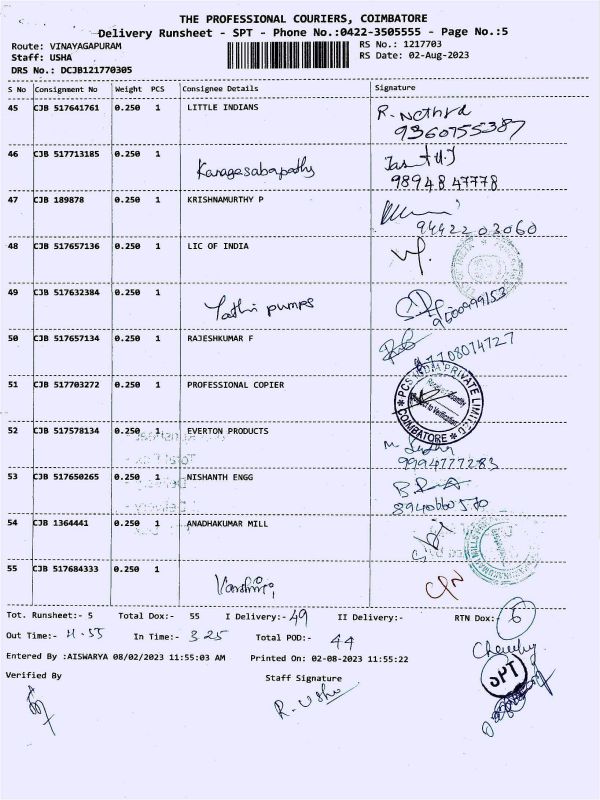 THE PROFESSIONAL COURIERS, COIMBATORE
Delivery Runsheet - SPT - Phone No.:0422-3505555 - Page No.:5
Route: VINAYAGAPURAM RS No.: 1217703
Staff: USHA RS Date: 02-Aug-2023
DRS No.: DCJB121770305
S No Consignment No Weight PCS Consignee Details Signature
45 CJB 517641761 0.250 1 LITTLE INDIANS R. Nethra
9360755387
46 CJB 517713185 0.250 1 Kanagasabapathy
98948 47778
47 CJB 189878 0.250 1 KRISHNAMURTHY P
94422 03060
48 CJB 517657136 0.250 1 LIC OF INDIA
49 CJB 517632384 0.250 1 Pumps
9600999153
50 CJB 517657134 0.250 1 RAJESHKUMAR F
7708074727
51 CJB 517703272 0.250 1 PROFESSIONAL COPIER
PCS INDIA PRIVATE LIMITED
Subject to Verification
* COIMBATORE *
52 CJB 517578134 0.250 1 EVERTON PRODUCTS
9994777283
53 CJB 517650265 0.250 1 NISHANTH ENGG
8940660570
54 CJB 1364441 0.250 1 ANADHAKUMAR MILL
55 CJB 517684333 0.250 1 Varshini
Tot. Runsheet:- 5 Total Dox:- 55 I Delivery:- 49 II Delivery:- RTN Dox:- 6
Out Time:- 11.55 In Time:- 3 25 Total POD:- 44
Entered By :AISWARYA 08/02/2023 11:55:03 AM Printed On: 02-08-2023 11:55:22
Verified By Staff Signature SPT
R. Usha